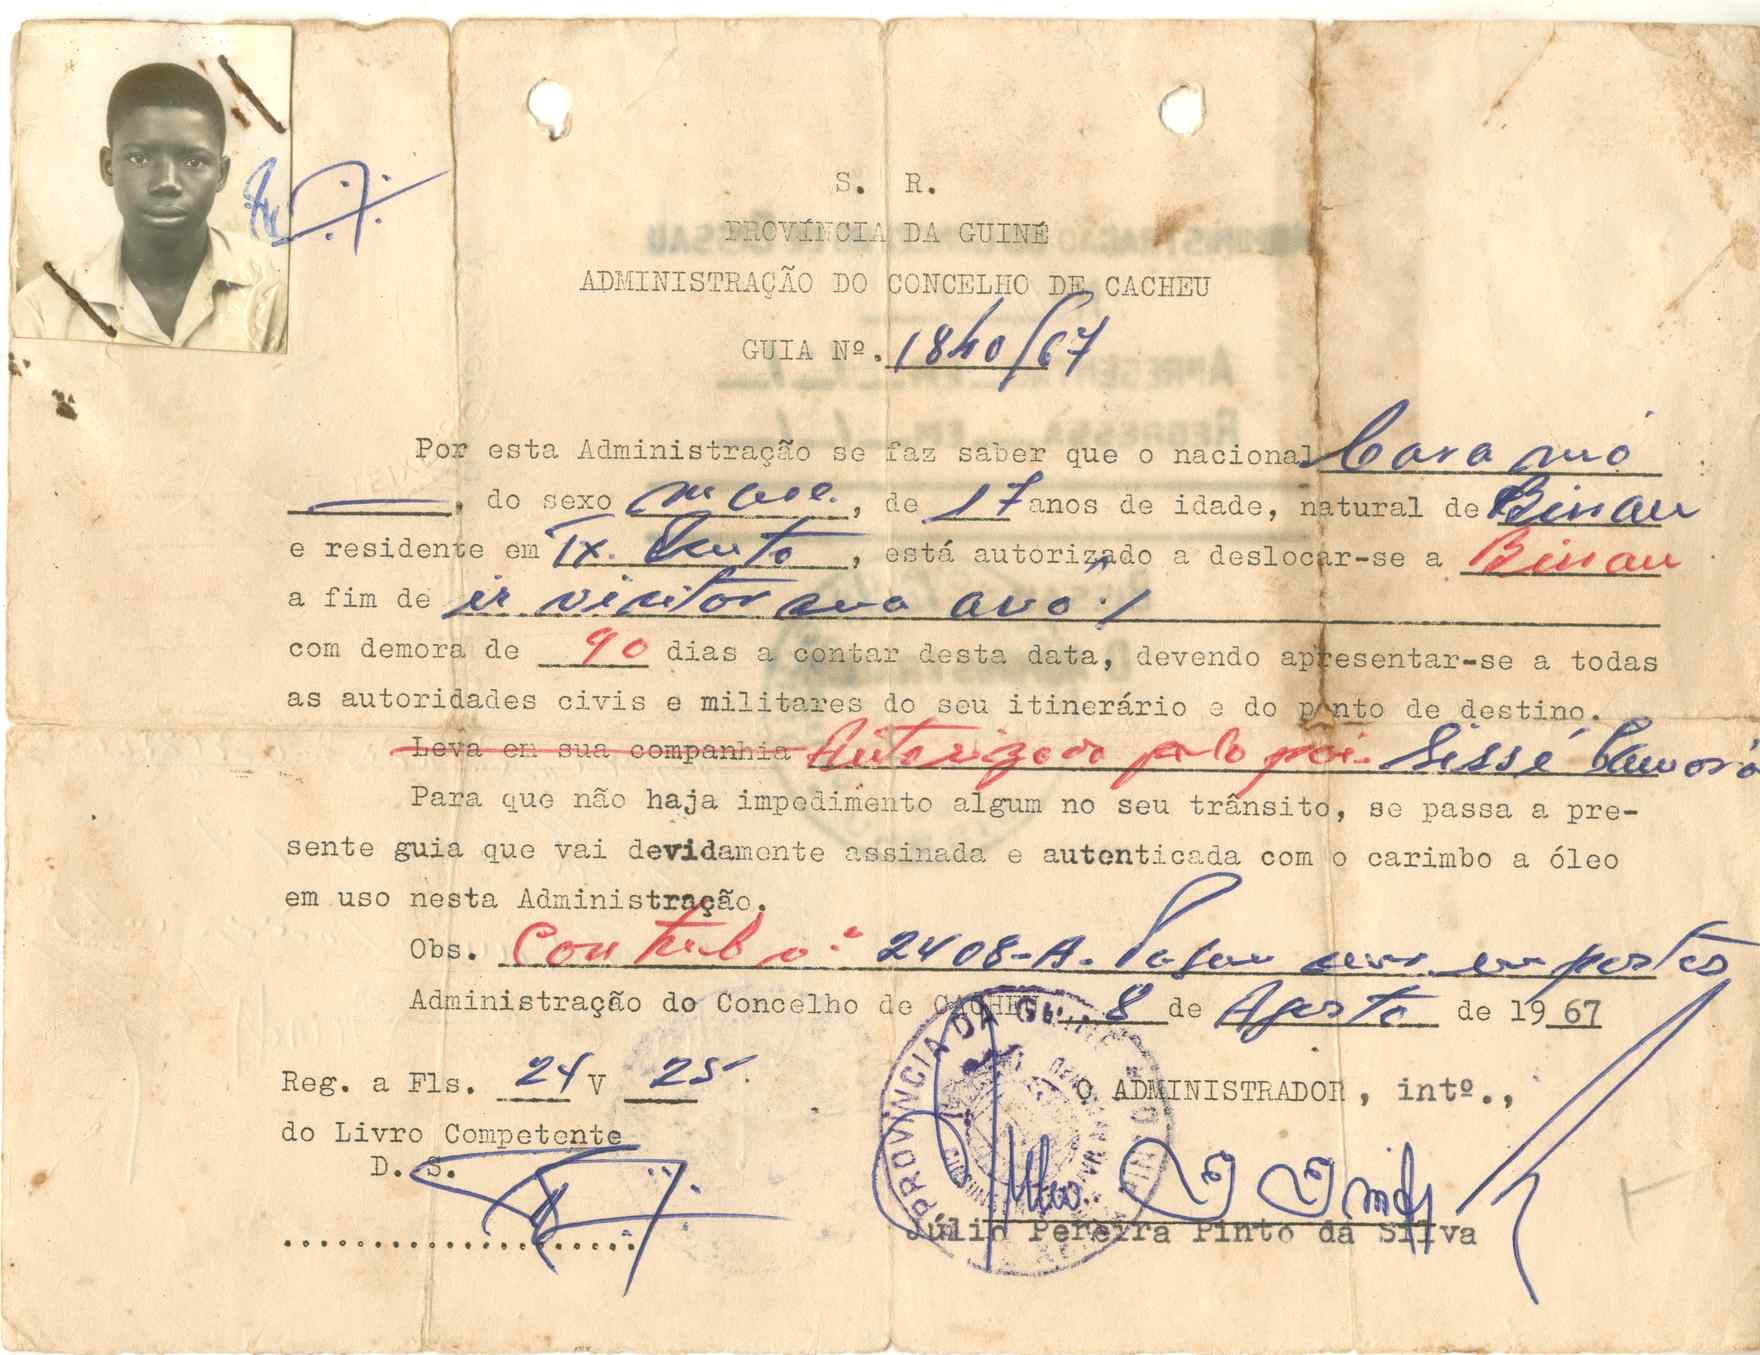 S. R.
PROVÍNCIA DA GUINÉ
ADMINISTRAÇÃO DO CONCELHO DE CACHEU
GUIA Nº. 1840/67
Por esta Administração se faz saber que o nacional
, do sexo masc., de 17 anos de idade, natural de Binau
e residente em Tx. Pinto, está autorizado a deslocar-se a Binau
a fim de ir visitar sua avó
com demora de 90 dias a contar desta data, devendo apresentar-se a todas
as autoridades civis e militares do seu itinerário e do ponto de destino.
Leva em sua companhia Autorizado pelo pai. Sissé Camará
Para que não haja impedimento algum no seu trânsito, se passa a pre-
sente guia que vai devidamente assinada e autenticada com o carimbo a óleo
em uso nesta Administração.
Obs. 2408-A.
Administração do Concelho de CACHEU, 8 de Agosto de 1967
Reg. a Fls. 24 V 25
O ADMINISTRADOR, intº.,
do Livro Competente
D. S.
PROVÍNCIA DA GUINÉ
Júlio Pereira Pinto da Silva